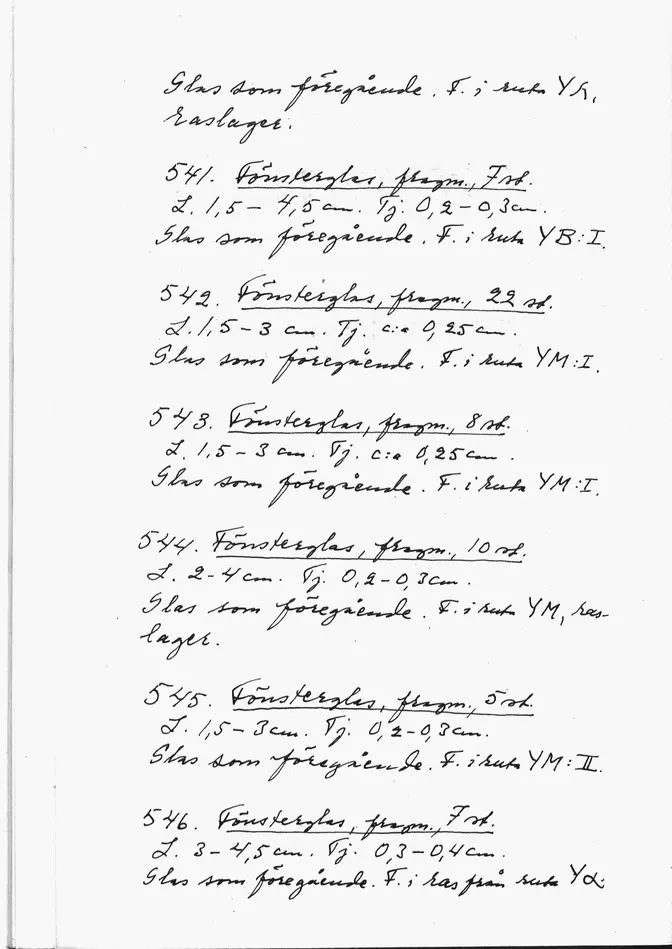 Glas som föregående. F. i ruta YA,
raslager.
541. Fönsterglas, fragm., 7 st.
L. 1,5 – 4,5 cm. Tj. 0,2 – 0,3 cm.
Glas som föregående. F. i ruta YB:I.
542. Fönsterglas, fragm., 22 st.
L. 1,5 – 3 cm. Tj. c:a 0,25 cm.
Glas som föregående. F. i ruta YM:I.
543. Fönsterglas, fragm., 8 st.
L. 1,5 – 3 cm. Tj. c:a 0,25 cm.
Glas som föregående. F. i ruta YM:I.
544. Fönsterglas, fragm., 10 st.
L. 2-4 cm. Tj. 0,2-0,3 cm.
Glas som föregående. F. i ruta YM, ras-
lager.
545. Fönsterglas, fragm., 5 st.
L. 1,5 – 3 cm. Tj. 0,2-0,3 cm.
Glas som föregående. F. i ruta YM:II.
546. Fönsterglas, fragm., 7 st.
L. 3 – 4,5 cm. Tj. 0,3-0,4 cm.
Glas som föregående. F. i ras från ruta Yα: